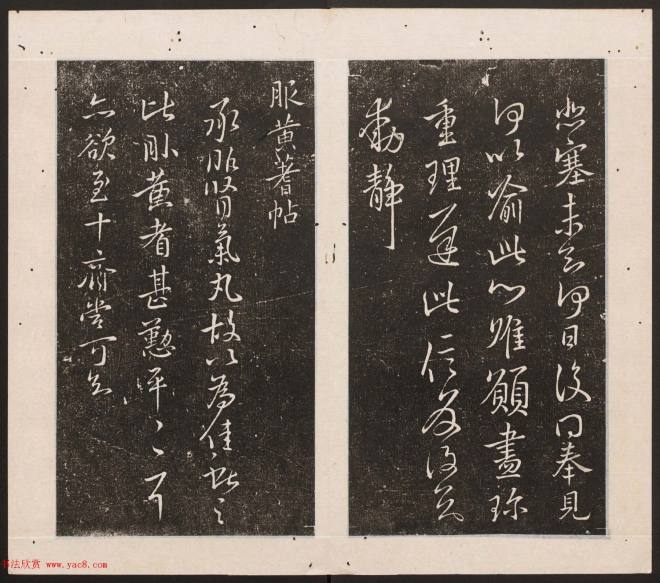 悲塞未知何日復得奉見
何以喻此心惟願盡珍
重理遲此信反復知
動靜
服黃蓍帖
承服腎氣丸故以為佳獻之
此服黃耆甚勤平平耳
亦欲至十齊當可知
书法欣赏 www.yac8.com